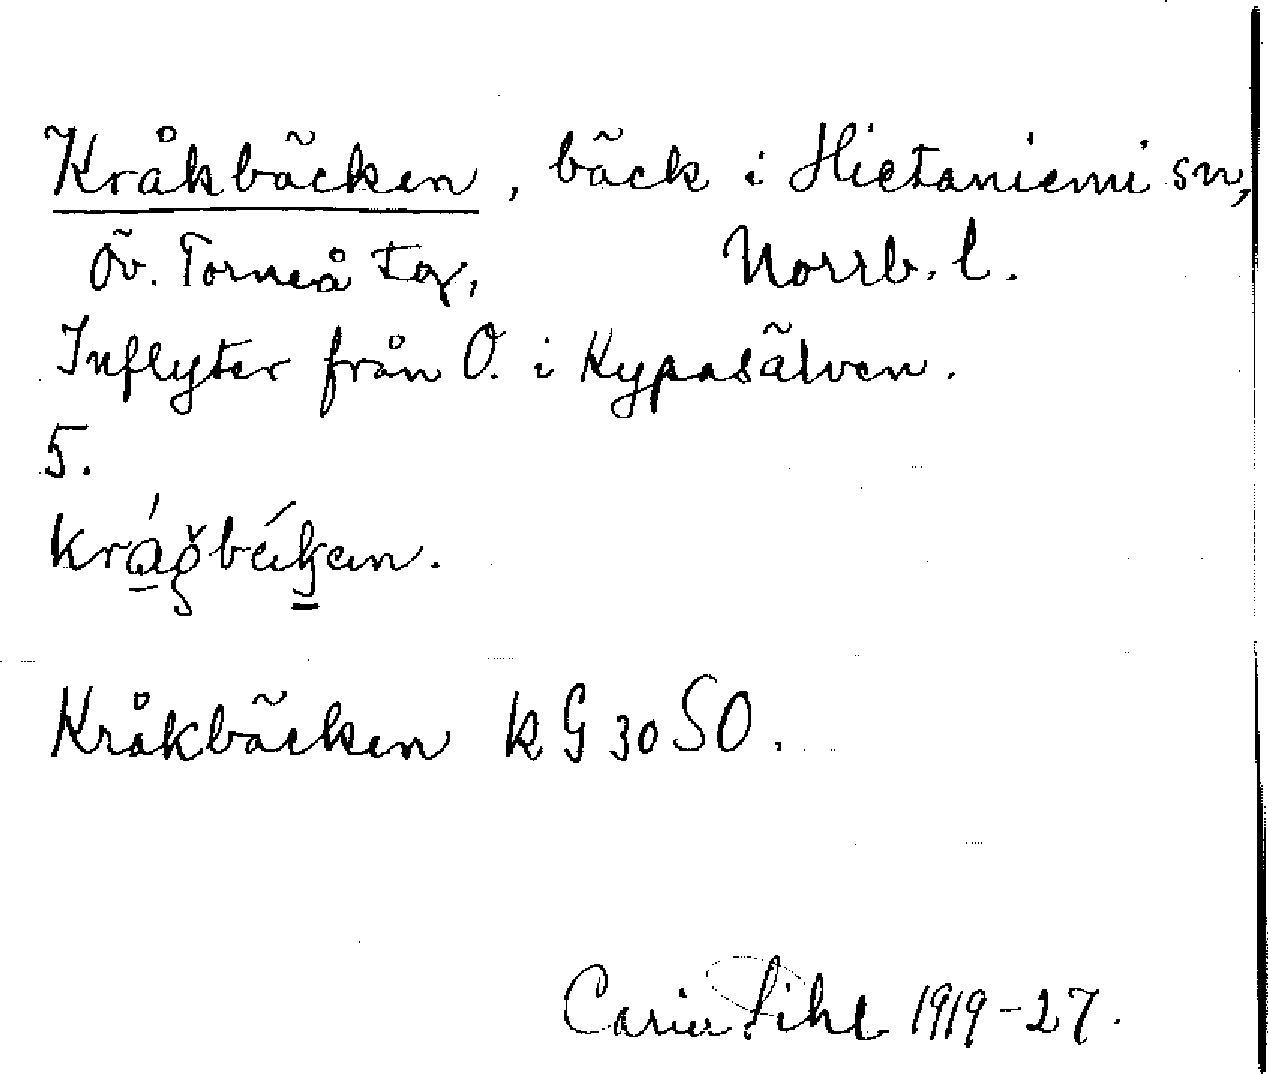 Kråkbäcken, bäck i Hietaniemi sn,
Öv. Torneå tg, Norrb. l.
Inflyter från O. i Kypasälven.
5.
Kråkbäcken kG 30 SO.
Carin Pihl 1919-27.